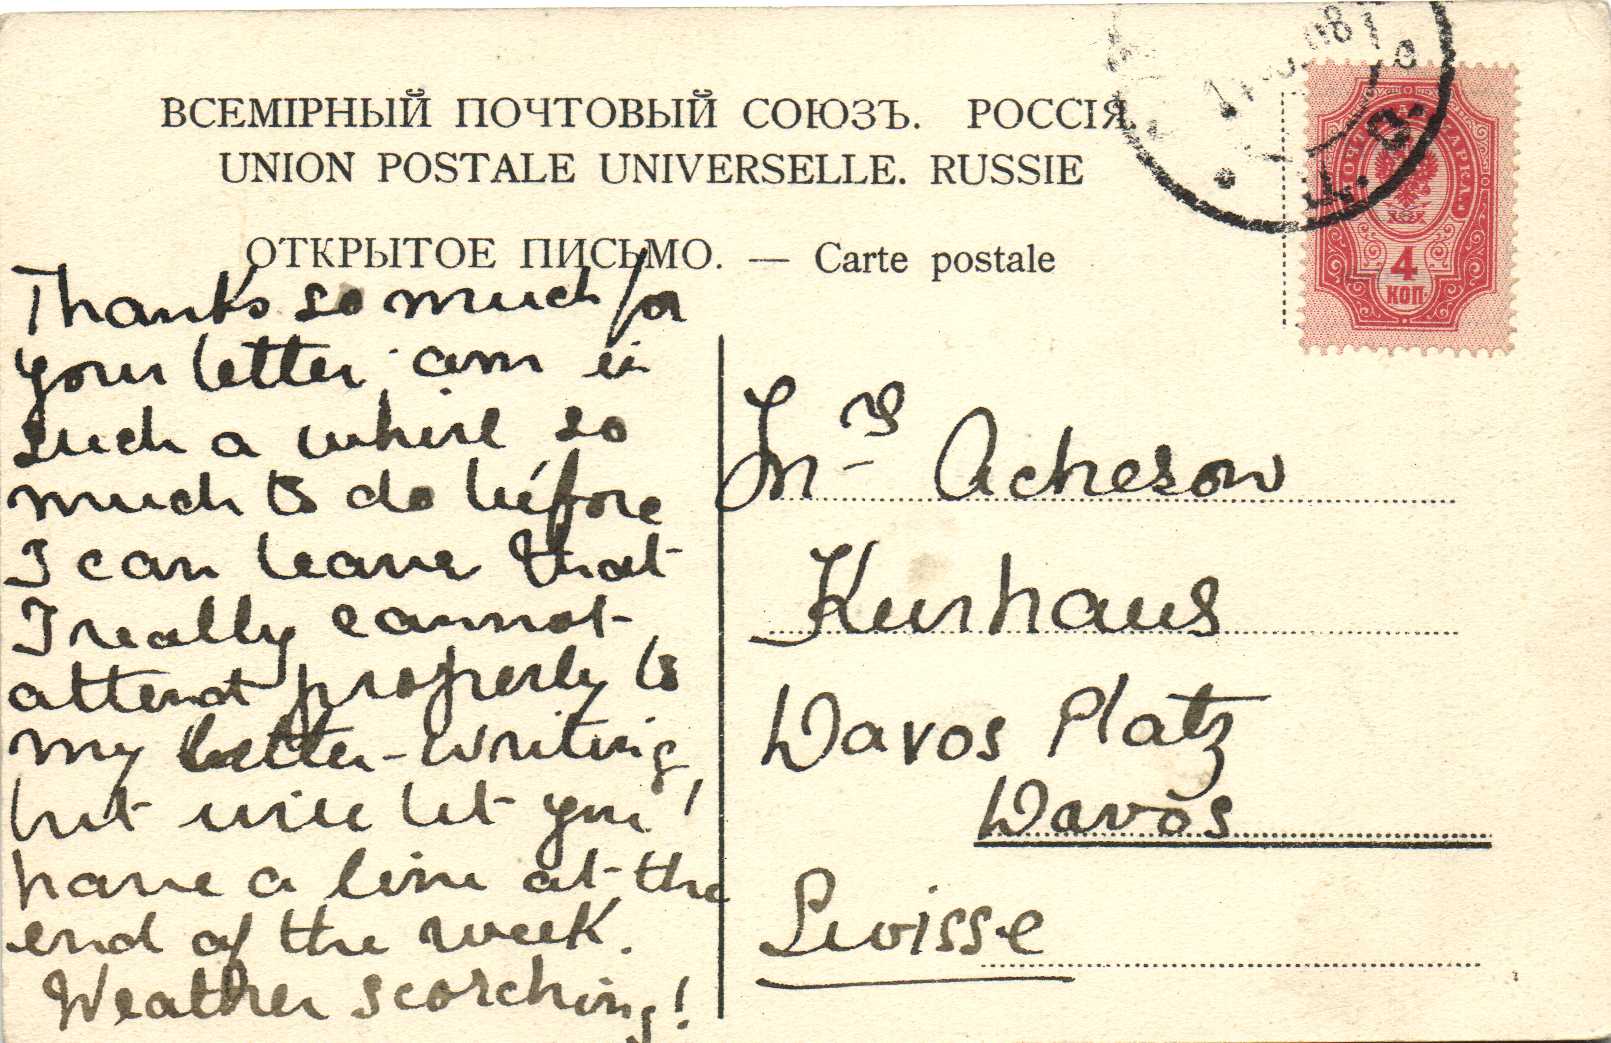 ВСЕМІРНЫЙ ПОЧТОВЫЙ СОЮЗЪ. РОССІЯ.
UNION POSTALE UNIVERSELLE. RUSSIE
ОТКРЫТОЕ ПИСЬМО. — Carte postale
ПОЧТ МАРКА.
4
КОП
Thanks so much for
your letter am in
such a whirl so
much to do before
I can leave that
I really cannot
attend properly to
my letter-writing,
but will let you
have a line at the
end of the week.
Weather scorching!
Mrs Acheson
Kurhaus
Davos Platz
Davos
Suisse